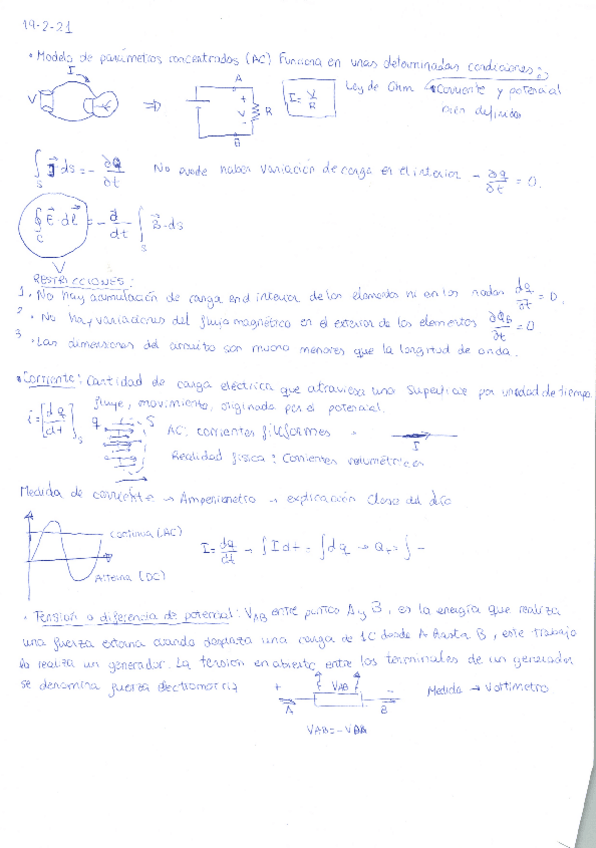 19-2-21
• Modelo de parámetros concentrados (AC) Funciona en unas determinadas condiciones:
I
V
⇒
A
+
V
-
R
B
I = V/R
Ley de Ohm
Corriente y potencial
bien definidos
∫_S J⃗·ds = - ∂Q/∂t   No puede haber variación de carga en el interior - ∂q/∂t = 0.
∮_C E⃗·dl⃗ = - d/dt ∫_S B⃗·ds
RESTRICCIONES:
1. No hay acumulación de carga en el interior de los elementos ni en los nodos dq/dt = 0.
2. No hay variaciones del flujo magnético en el exterior de los elementos
3. Las dimensiones del circuito son mucho menores que la longitud de onda.
• Corriente: Cantidad de carga eléctrica que atraviesa una superficie por unidad de tiempo.
fluye, movimiento, originada por el potencial.
i = [dq/dt]_S
q
S
AC: corrientes filiformes
I
Realidad física: Corrientes volumétricas
Medida de corriente → Amperímetro → explicación Clase del día
Continua (AC)
Alterna (DC)
I = dq/dt → ∫I dt = ∫dq → Q_T = ∫ -
• Tensión o diferencia de potencial: V_AB entre puntos A y B, es la energía que realiza
una fuerza externa cuando desplaza una carga de 1C desde A hasta B, este trabajo
lo realiza un generador. La tension en abierto entre los terminales de un generador
se denomina fuerza electromotriz
+
V_AB
-
A
B
Medida → Voltímetro
V_AB = -V_BA